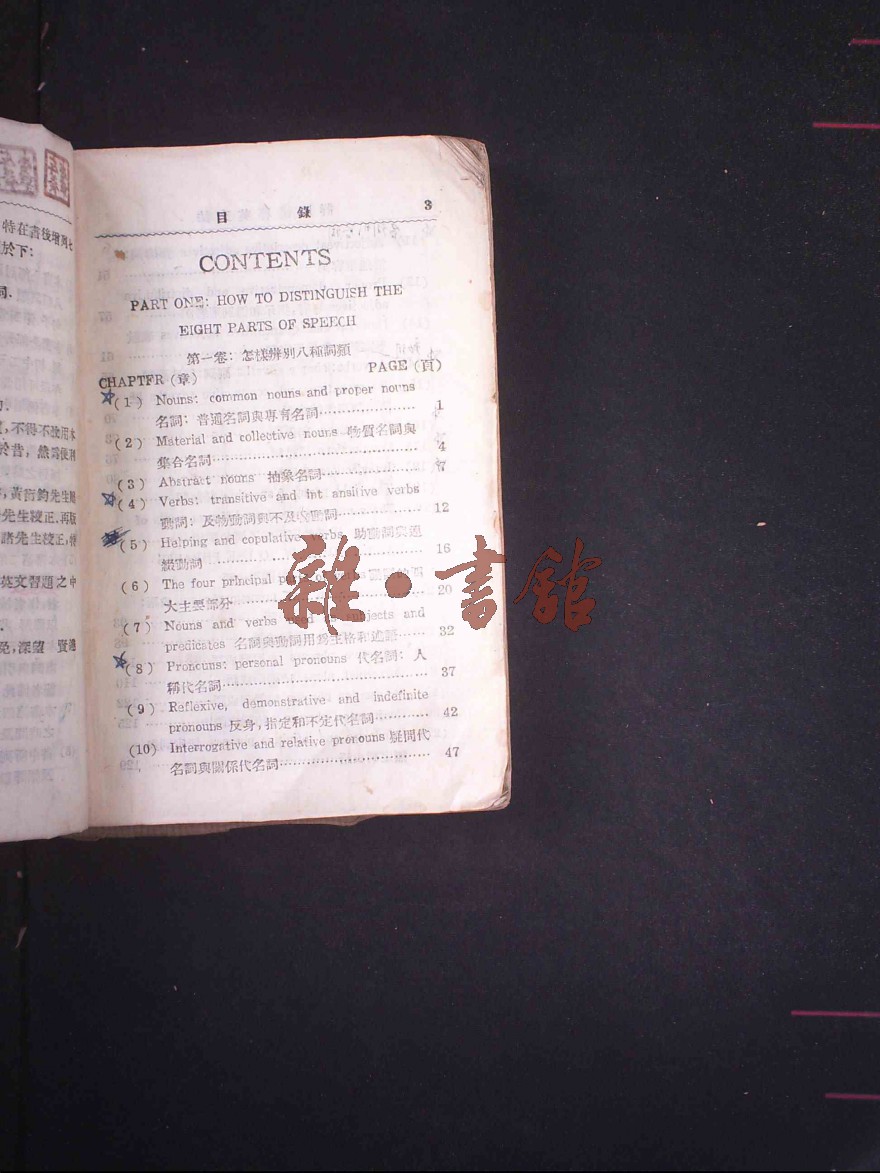 特在書後增列七
於下:
詞.
,不得不改用本
於昔,
先生校正.再版
諸先生校正,
英文習題之中
免,深望 賢達
目 錄 3
CONTENTS
PART ONE: HOW TO DISTINGUISH THE
EIGHT PARTS OF SPEECH
第一卷: 怎樣辨別八種詞類
CHAPTFR (章) PAGE (頁)
(1) Nouns: common nouns and proper nouns
名詞: 普通名詞與專有名詞 1
(2) Material and collective nouns 物質名詞與
集合名詞 4
(3) Abstract nouns 抽象名詞 7
(4) Verbs: transitive and int ansitive verbs
動詞: 及物動詞與不及物動詞 12
(5) Helping and copulative verbs 助動詞與連
綴動詞 16
(6) The four principal
大主要部分 20
(7) Nouns and verbs subjects and
predicates 名詞與動詞用爲主格和述語 32
(8) Pronouns: personal pronouns 代名詞: 人
稱代名詞 37
(9) Reflexive, demonstrative and indefinite
pronouns 反身,指定和不定代名詞 42
(10) Interrogative and relative pronouns 疑問代
名詞與關係代名詞 47
雜·書館